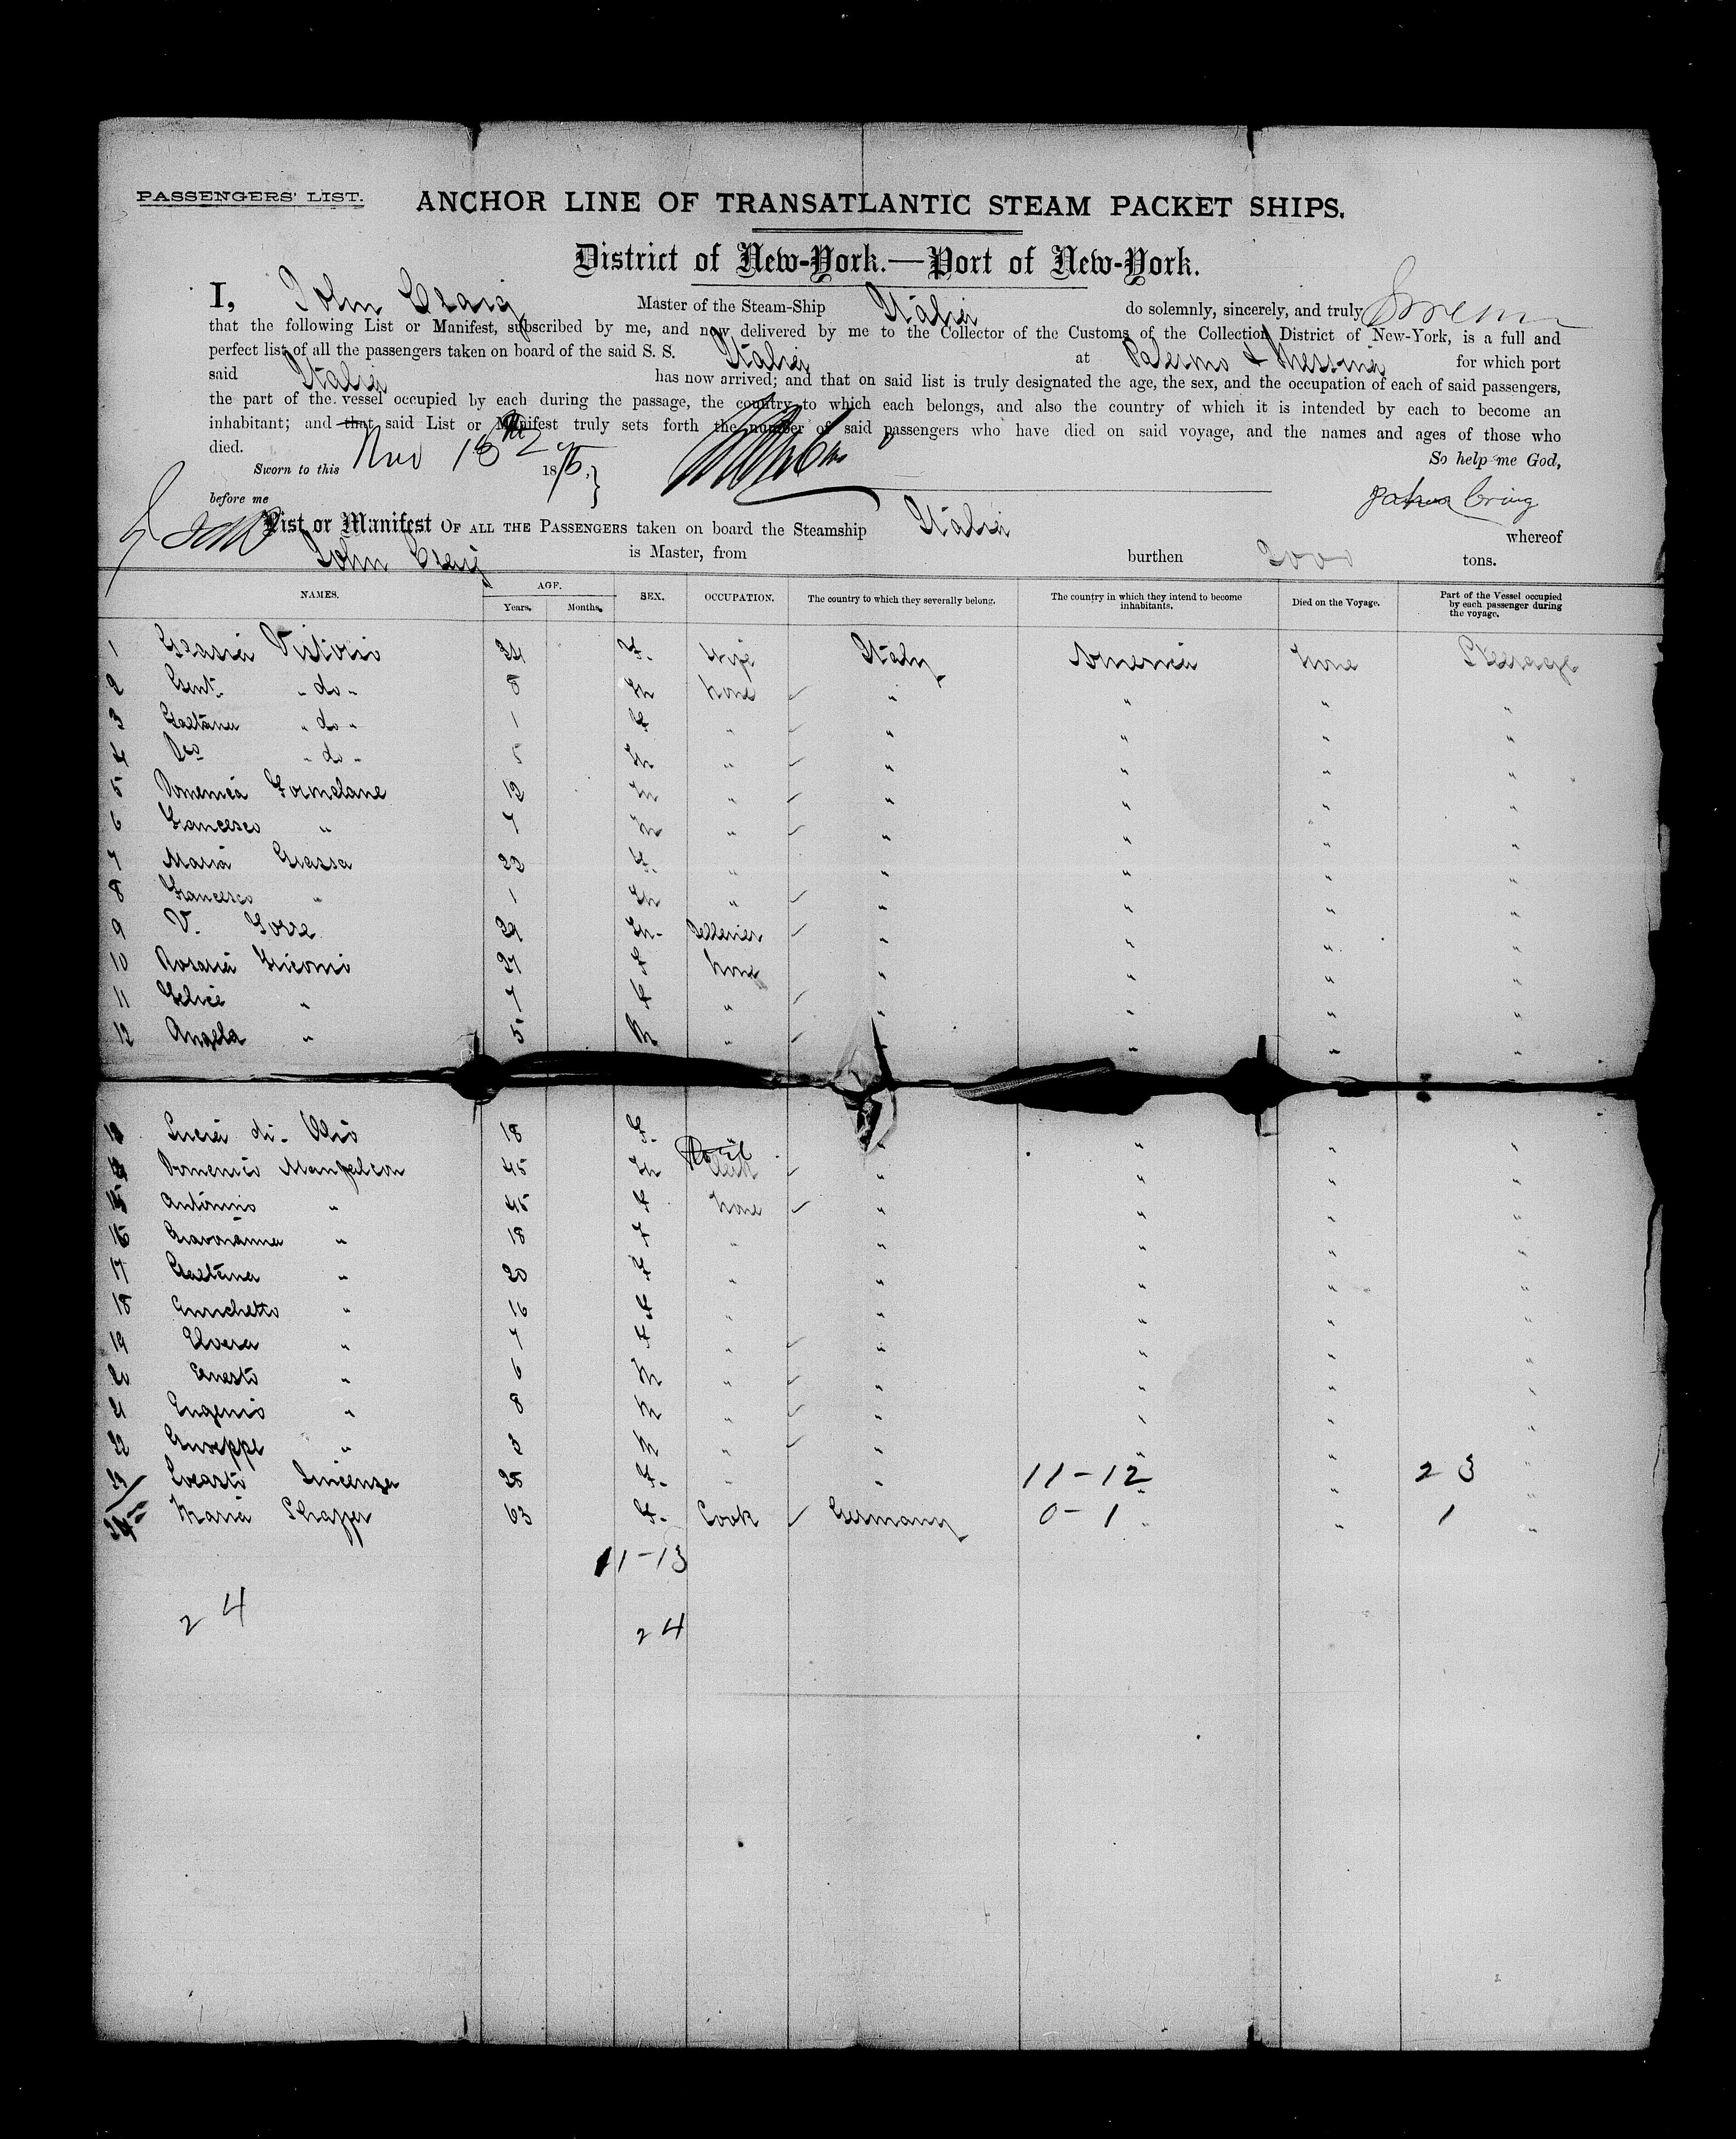 PASSENGERS' LIST.
ANCHOR LINE OF TRANSATLANTIC STEAM PACKET SHIPS.
District of New-York.—Port of New-York.
I, John Craig Master of the Steam-Ship Italia do solemnly, sincerely, and truly Swear
that the following List or Manifest, subscribed by me, and now delivered by me to the Collector of the Customs of the Collection District of New-York, is a full and
perfect list of all the passengers taken on board of the said S. S. Italia at Palermo & Messina for which port
said Italia has now arrived; and that on said list is truly designated the age, the sex, and the occupation of each of said passengers,
the part of the vessel occupied by each during the passage, the country to which each belongs, and also the country of which it is intended by each to become an
inhabitant; and that said List or Manifest truly sets forth the number of said passengers who have died on said voyage, and the names and ages of those who
died. So help me God,
Sworn to this Nov 18
before me John Craig
List or Manifest OF ALL THE PASSENGERS taken on board the Steamship Italia whereof
John Craig is Master, from burthen 2000 tons.
NAMES. AGE. Years. Months. SEX. OCCUPATION. The country to which they severally belong. The country in which they intend to become inhabitants. Died on the Voyage. Part of the Vessel occupied by each passenger during the voyage.
1 Vittorio 24 F. Wife Italy America None Steerage
2 " do " 8 M None " " " "
3 Gaetana " do " 1 F " " " " "
4 " do " 5 M " " " " "
5 Domenica 12 M " " " " "
6 Francesco " 7 M " " " " "
7 Maria Grassa 22 F. " " " " "
8 Francesco " 1 M " " " " "
9 V. 29 M. " " " "
10 Rosaria 27 F None " " " "
11 Felice " 7 F " " " " "
12 Angela " 5 M " " " " "
13 Lucia di 18 F. " " " "
14 Domenico 45 M " " " "
15 Antonino " 45 F None " " " "
16 " 18 F " " " " "
17 Gaetana " 20 F " " " " "
18 Enrichetto " 16 F " " " " "
19 Elvera " 7 F " " " " "
20 Ernesto " 6 M " " " " "
21 Eugenio " 8 M " " " " "
22 Guseppe " 3 M " " " " "
23 28 F. " " 11-12 " " 23 "
24 Maria 63 F. Cook Germany 0-1 " " 1 "
11-13
24 24